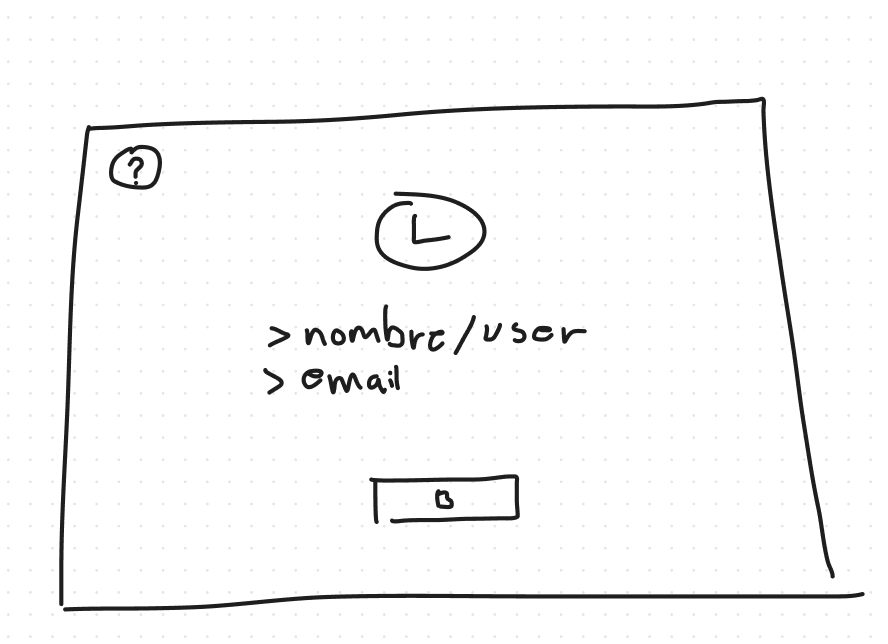 ?
L
> nombre/user
> email
B